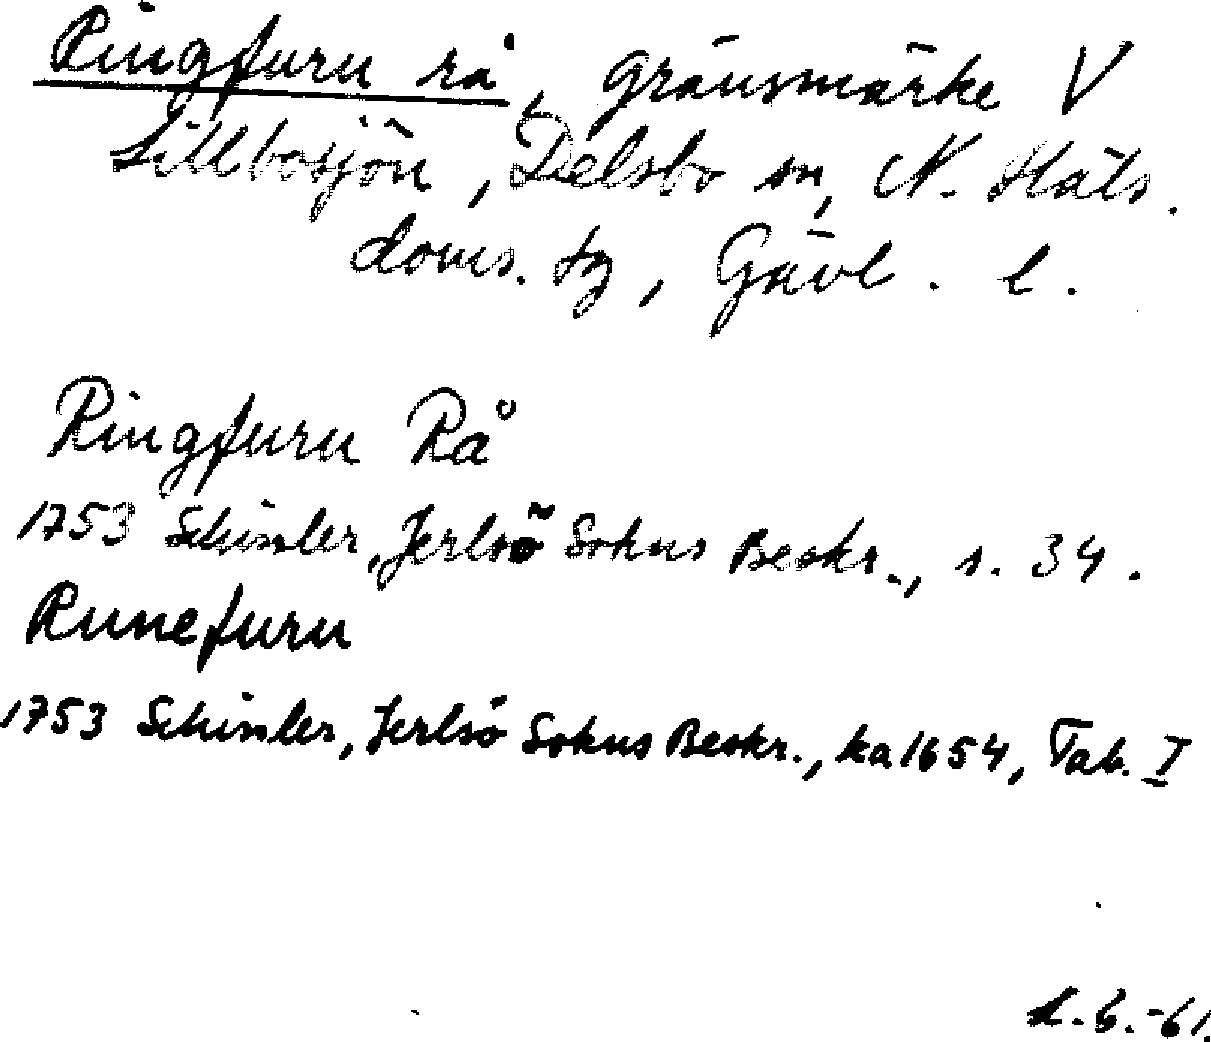 Ringfuru rå, gränsmärke V
Lillbosjön, Delsbo sn, N. Häls.
doms. tg, Gävl. l.
Ringfuru Rå
1753 Schissler, Jerlsö Sokns Beskr., s. 34.
Runefuru
1753 Schissler, Jerlsö Sokns Beskr., ka 1654, Tab. I
L.G.-61.